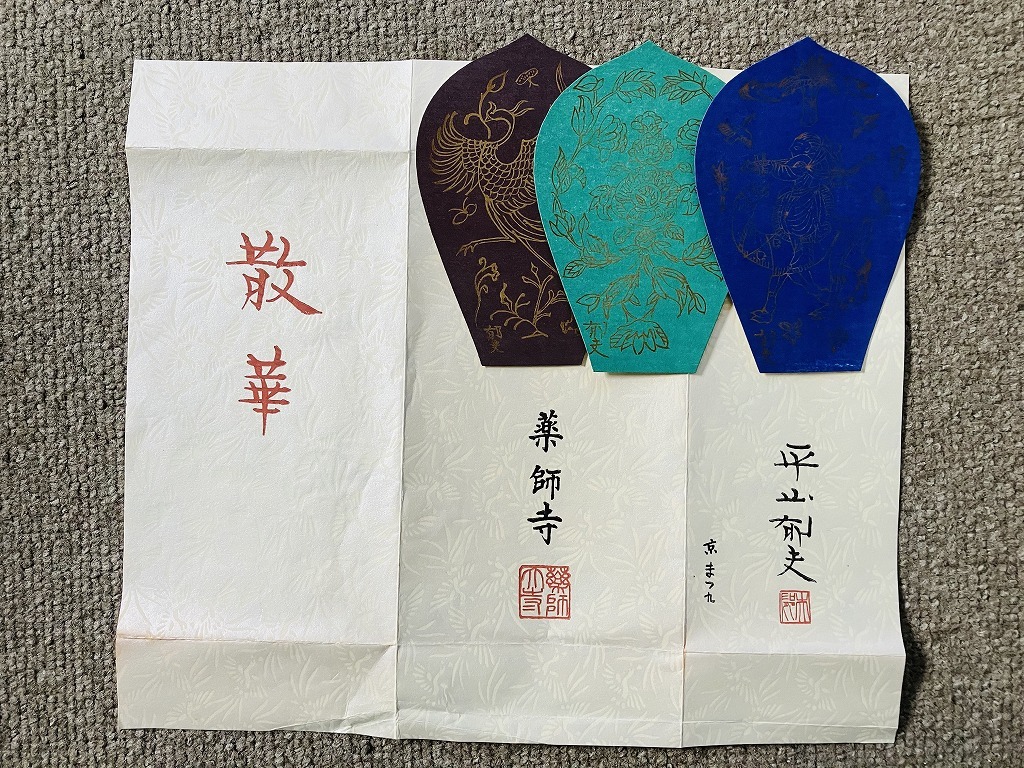 散華
薬師寺
薬師
大寺
平山郁夫
京まつ九
郁夫
郁夫